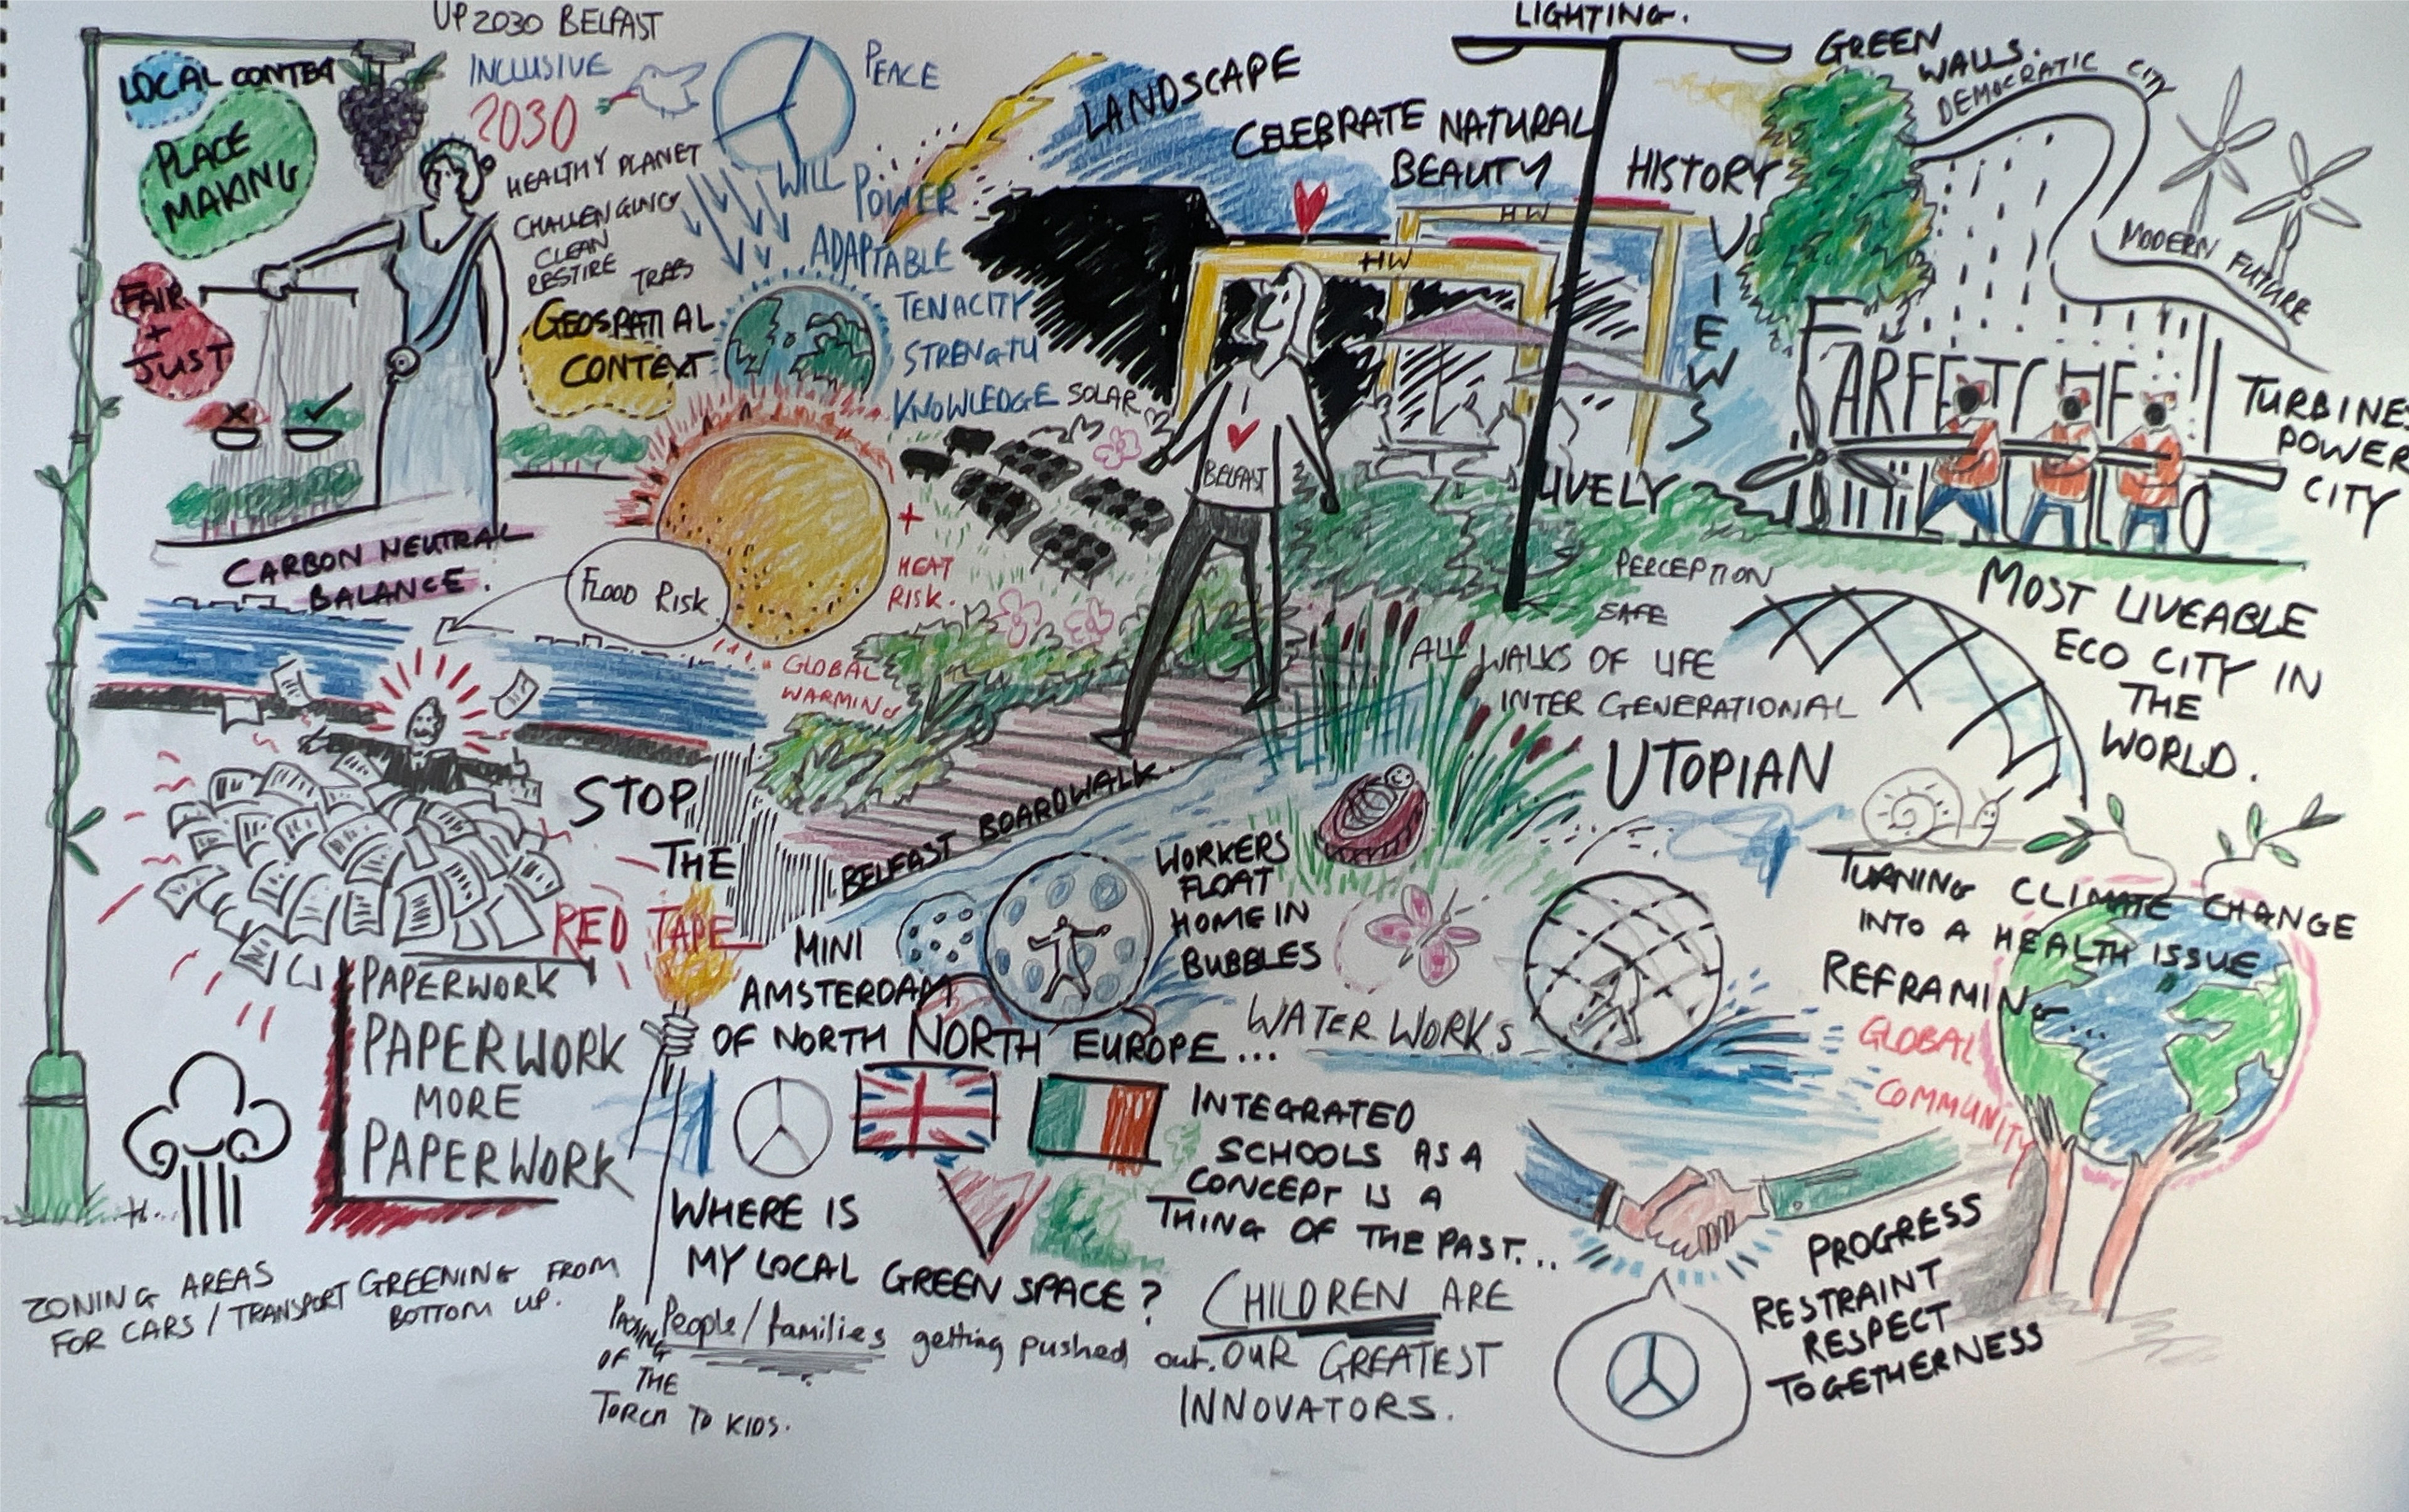 UP2030 BELFAST
INCLUSIVE
2030
HEALTHY PLANET
CHALLENGING
CLEAN
RESTIRE TREES
LOCAL CONTEXT
PLACE
MAKING
FAIR
+
JUST
GEOSPATIAL
CONTEXT
CARBON NEUTRAL
BALANCE.
PEACE
WILL POWER
ADAPTABLE
TENACITY
STRENGTH
KNOWLEDGE
SOLAR
FLOOD RISK.
+
HEAT
RISK.
GLOBAL
WARMING
LANDSCAPE
CELEBRATE NATURAL
BEAUTY
LIGHTING.
HISTORY
VIEWS
HW
HW
BELFAST
LIVELY
GREEN
WALLS.
DEMOCRATIC CITY
MODERN FUTURE
FARFETCHE
TURBINES
POWER
CITY
PERCEPTION
SAFE
ALL WALKS OF LIFE
INTER GENERATIONAL
UTOPIAN
MOST LIVEABLE
ECO CITY IN
THE
WORLD.
STOP
THE
RED TAPE
PAPERWORK
PAPERWORK
MORE
PAPERWORK
BELFAST BOARDWALK.
WORKERS
FLOAT
HOME IN
BUBBLES
MINI
AMSTERDAM
OF NORTH NORTH EUROPE...
WATER WORKS
TURNING CLIMATE CHANGE
INTO A HEALTH ISSUE
REFRAMING...
GLOBAL
COMMUNITY
INTEGRATED
SCHOOLS AS A
CONCEPT IS A
THING OF THE PAST...
WHERE IS
MY LOCAL GREEN SPACE?
People/families getting pushed out.
CHILDREN ARE
OUR GREATEST
INNOVATORS.
PROGRESS
RESTRAINT
RESPECT
TOGETHERNESS
ZONING AREAS
FOR CARS/TRANSPORT
GREENING FROM
BOTTOM UP.
PASSING
OF THE
TORCH TO KIDS.